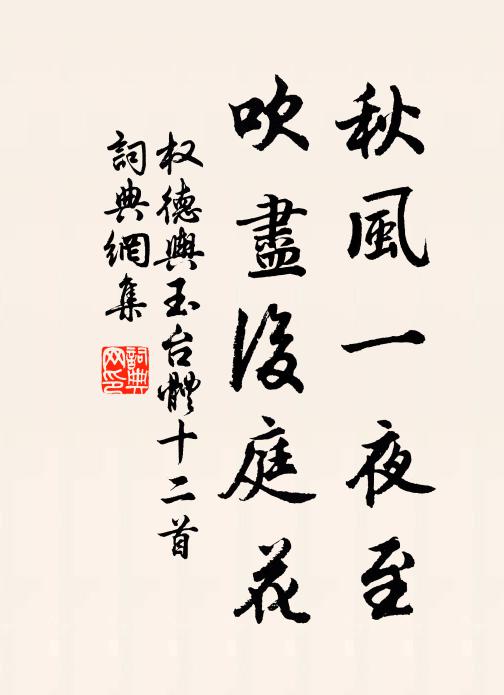 秋風一夜至
吹盡後庭花
权德輿玉台體十二首
詞典網集
詞典
网印